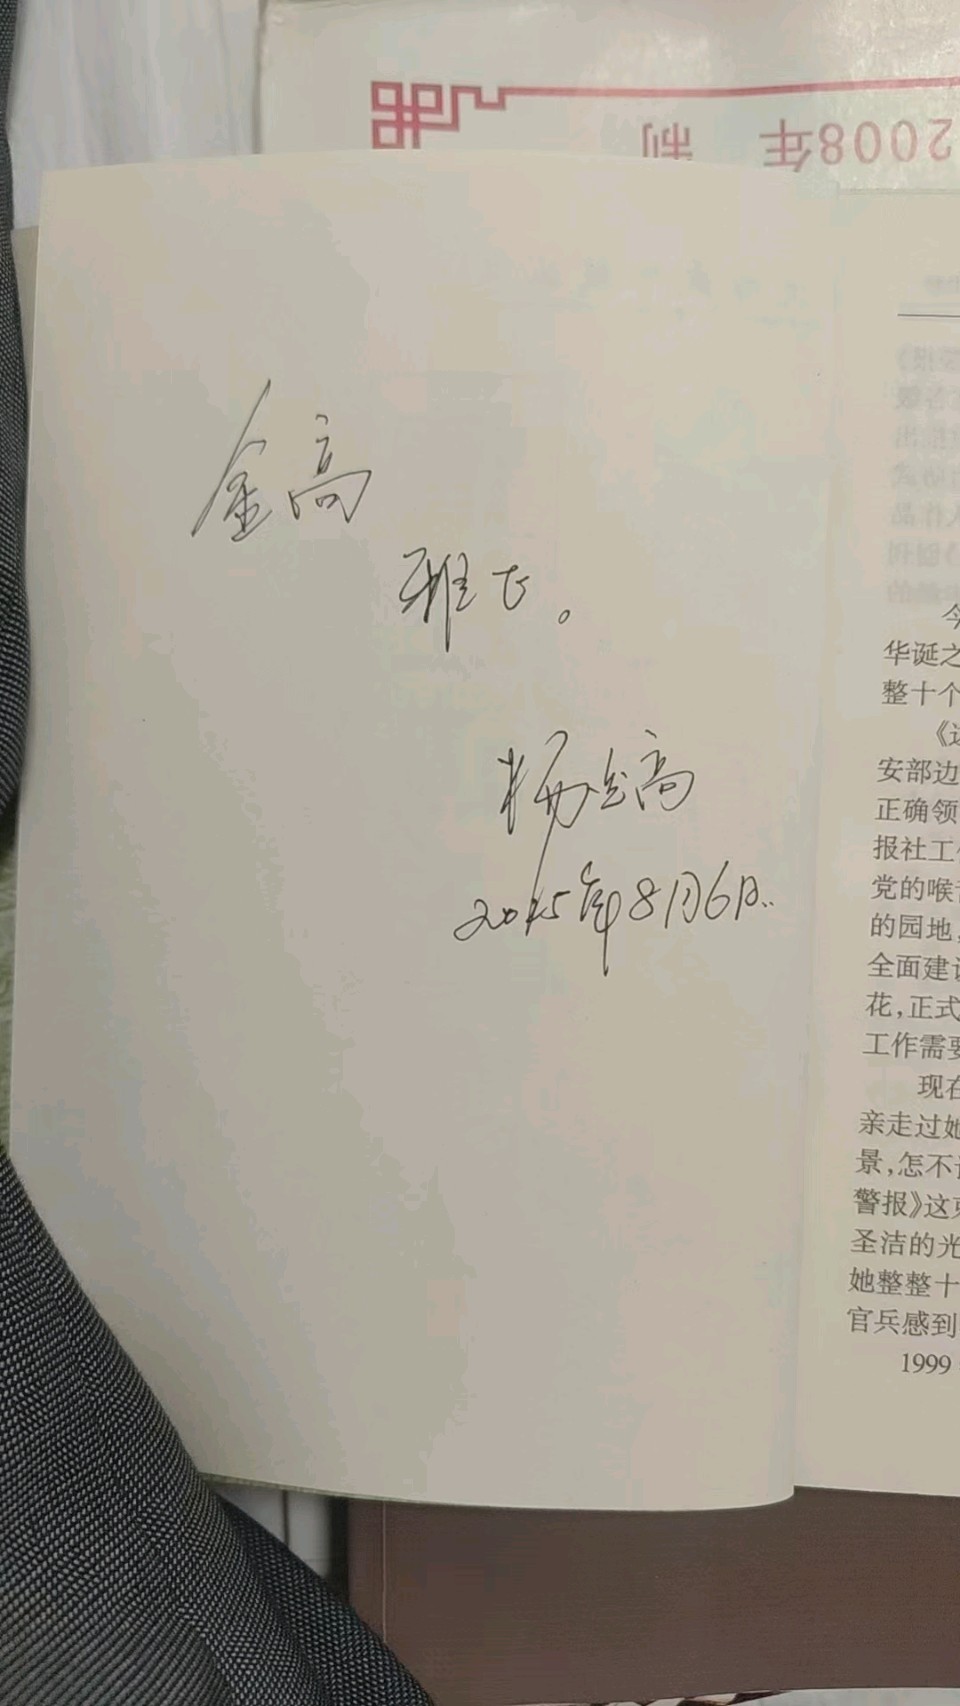 2008年 制
金高
雅正。
杨金高
2015年8月6日..
今
华诞之
整十个
《边
安部边
正确领
报社工作
党的喉舌
的园地,
全面建设
花,正式
工作需要
现在
亲走过她
景,怎不
警报》这
圣洁的光
她整整十
官兵感到
1999